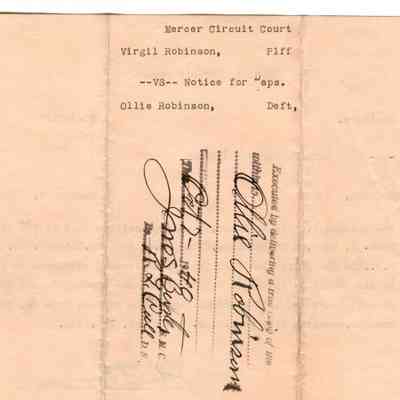 Mercer Circuit Court
Virgil Robinson, Plff
--VS-- Notice for Daps.
Ollie Robinson, Deft,
Executed by delivering a true copy of the
within
Ollie Robinson
This
M. C.
By D. S.